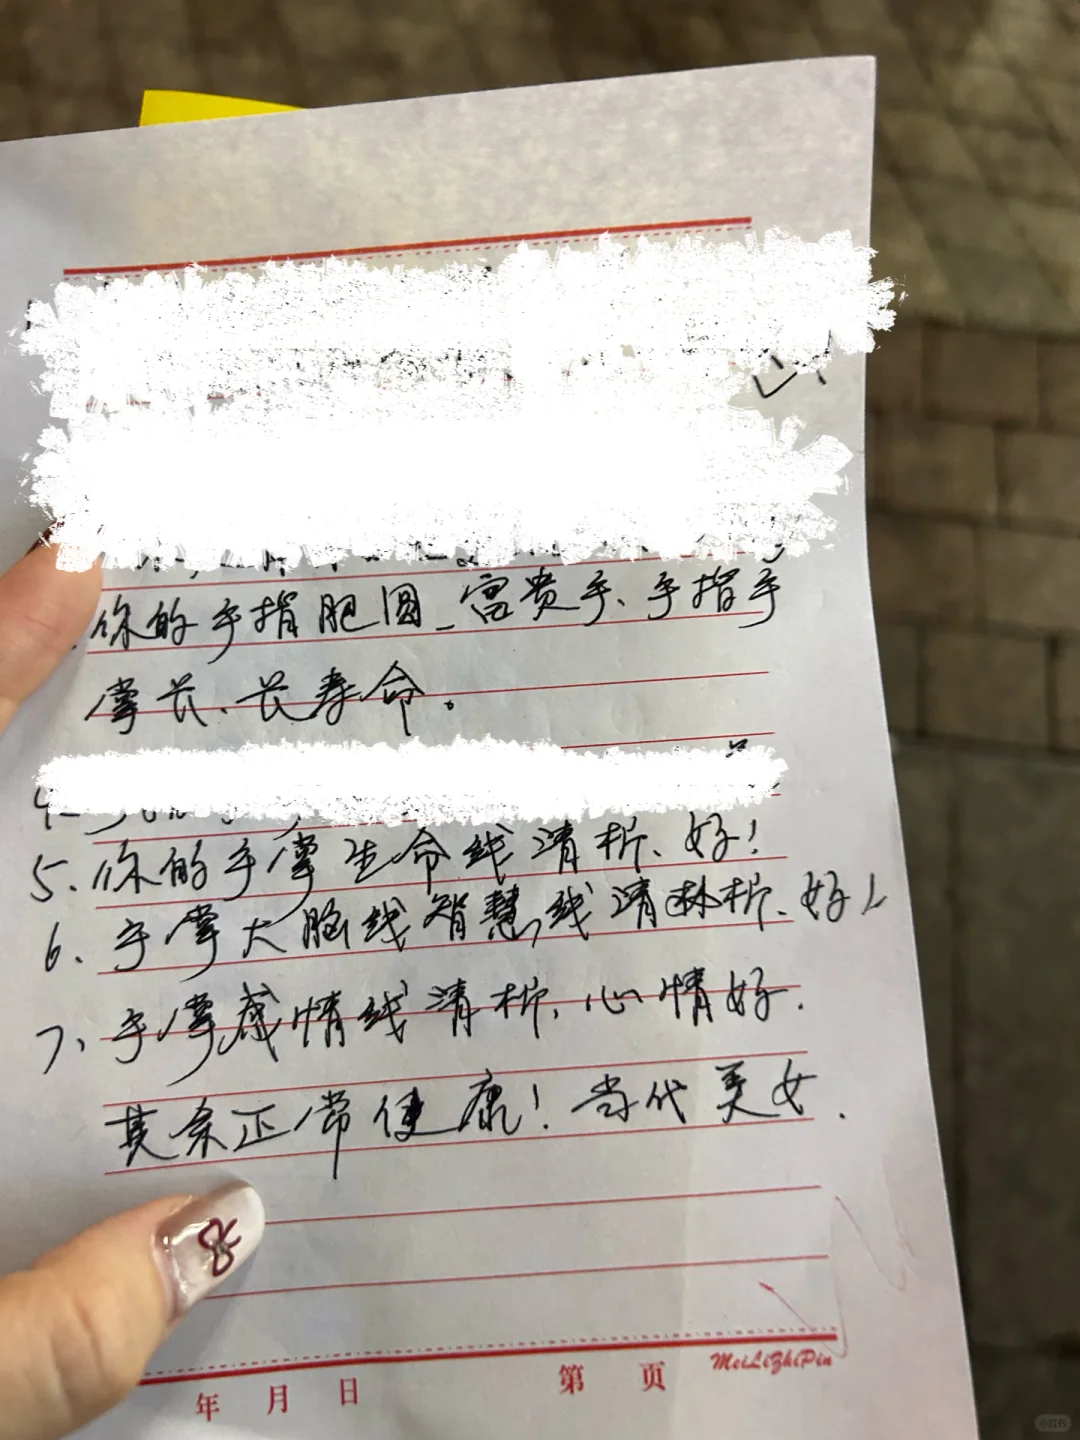 你的手指肥圆_富贵手、手指手
掌长、长寿命。
5、你的手掌生命线清析、好！
6、手掌大脑线智慧线清析、好！
7、手掌感情线清析、心情好.
其余正常健康！当代美女.
年 月 日 第 页 MeiLiZhiPin
小红书